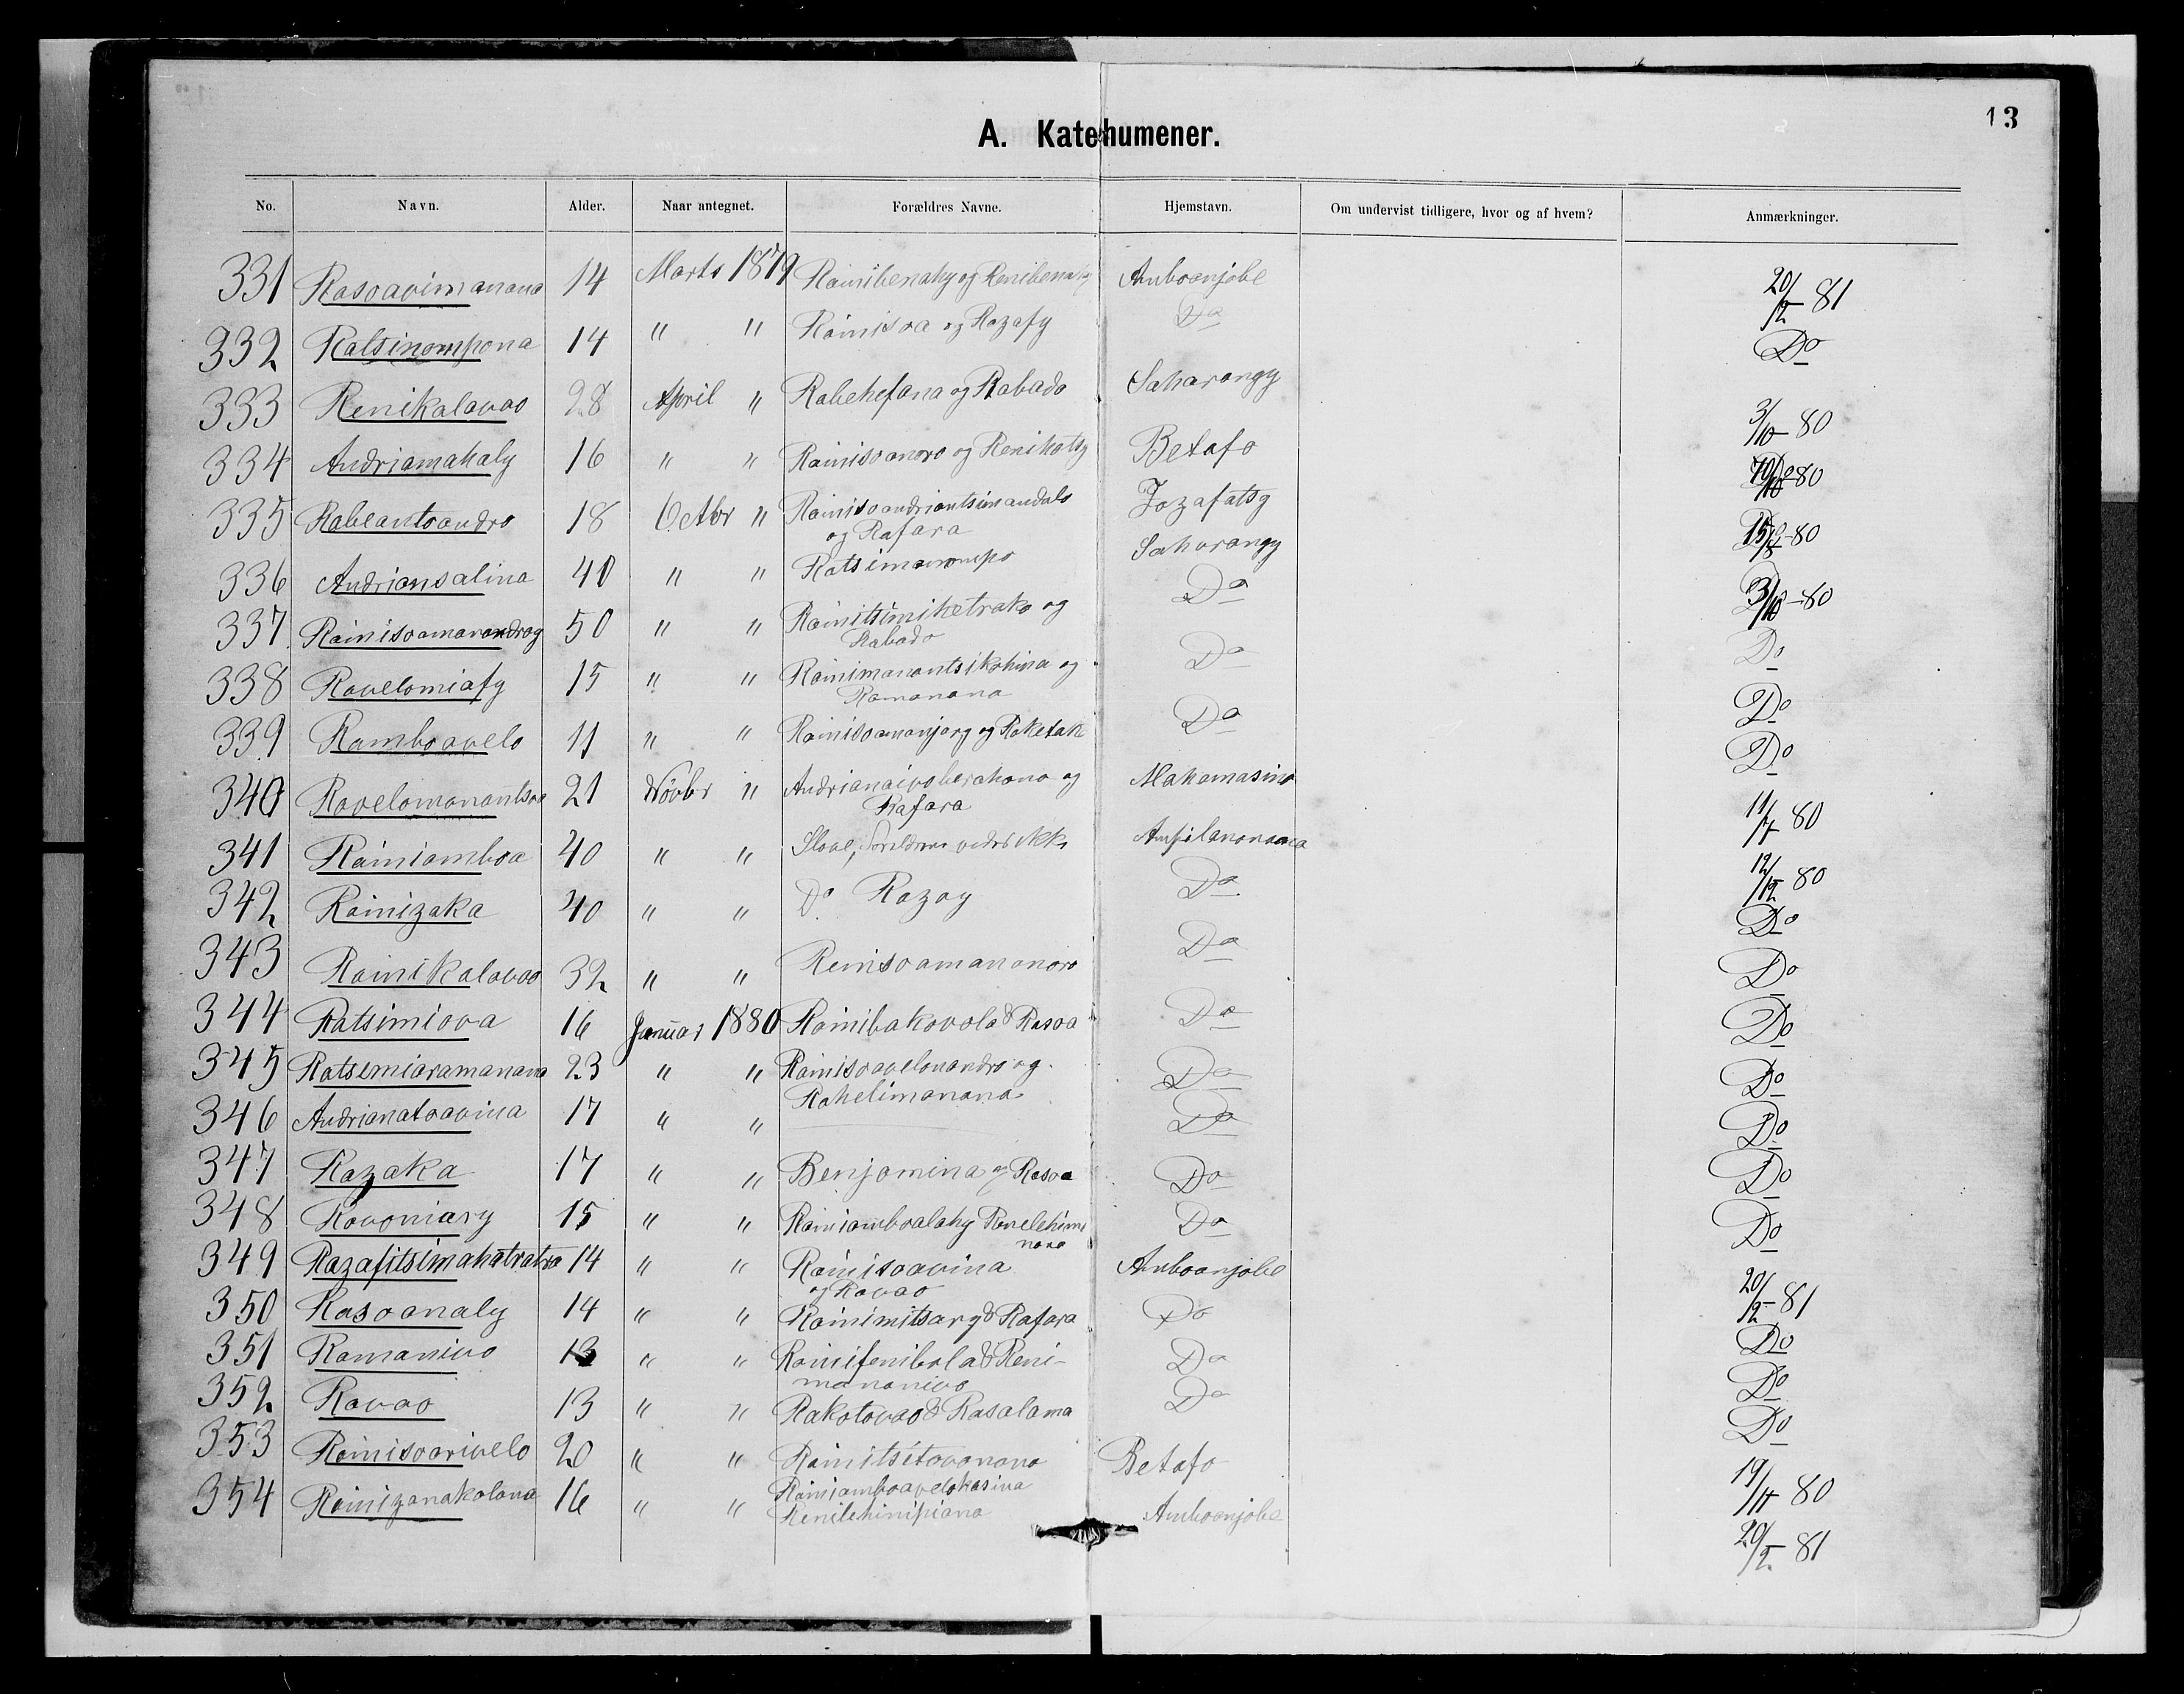 13
A. Katehumener.
No. Navn. Alder. Naar antegnet. Forældres Navne. Hjemstavn. Om undervist tidligere, hvor og af hvem? Anmærkninger.
331 Rasoavimanana 14 Marts 1879 Rainibenahy og Renibenahy Amboanjobe 20/12-81
332 Ratsinompona 14 " " Rainisoa og Razafy Do Do
333 Renikalavao 28 April " Rabehefana og Rabado Saharangy 3/10-80
334 Andriamahaly 16 " " Rainisoanoro og Renikotsy Betafo 80
335 Rabeantoandro 18 Octbr " Rainisoandriantsimandala Jozafatsy 80
og Rafara
336 Andriansalina 40 " " Ratsimanompo Saharangy 3/10-80
337 Rainisoamanandroy 50 " " Rainitsimihetrako og Do Do
Rabado
338 Ravelomiafy 15 " " Rainimanantsikohina og Do Do
Ramanana
339 Ramboavelo 11 " " Rainisoamanjary og Raketake Do Do
340 Ravelomanantsoa 21 Novbr " Andrianaivoberahona og Mahamasina 11/7 80
Rafara
341 Rainiamboa 40 " " Slave, Ampilanonana 12/12 80
342 Rainizaka 40 " " Do Razay Do Do
343 Rainikalavao 32 " " Renisoamananoro Do Do
344 Ratsimiova 16 Januar 1880 Rainibakovola & Rasoa Do Do
345 Ratsimiaramanana 23 " " Rainisoavelonandro og Do Do
Rahelimanana
346 Andrianatoavina 17 " " Do Do
347 Razaka 17 " " Benjamina og Rasoa Do Do
348 Ravoniary 15 " " Rainiamboalahy Renelehima Do Do
nana
349 Razafitsimahatratra 14 " " Rainisoavina Amboanjobe 20/12-81
og Ravao
350 Rasoanaly 14 " " Rainimitsary & Rafara Do Do
351 Ramanivo 13 " " Rainifenibola & Reni- Do Do
mananivo
352 Ravao 13 " " Rakotovao & Rasalama Do Do
353 Rainisoarivelo 20 " " Rainitsitovanana Betafo 19/11 80
354 Rainizanakolona 16 " " Rainiamboavelokasina Amboanjobe 20/12-81
Renilehimisiana